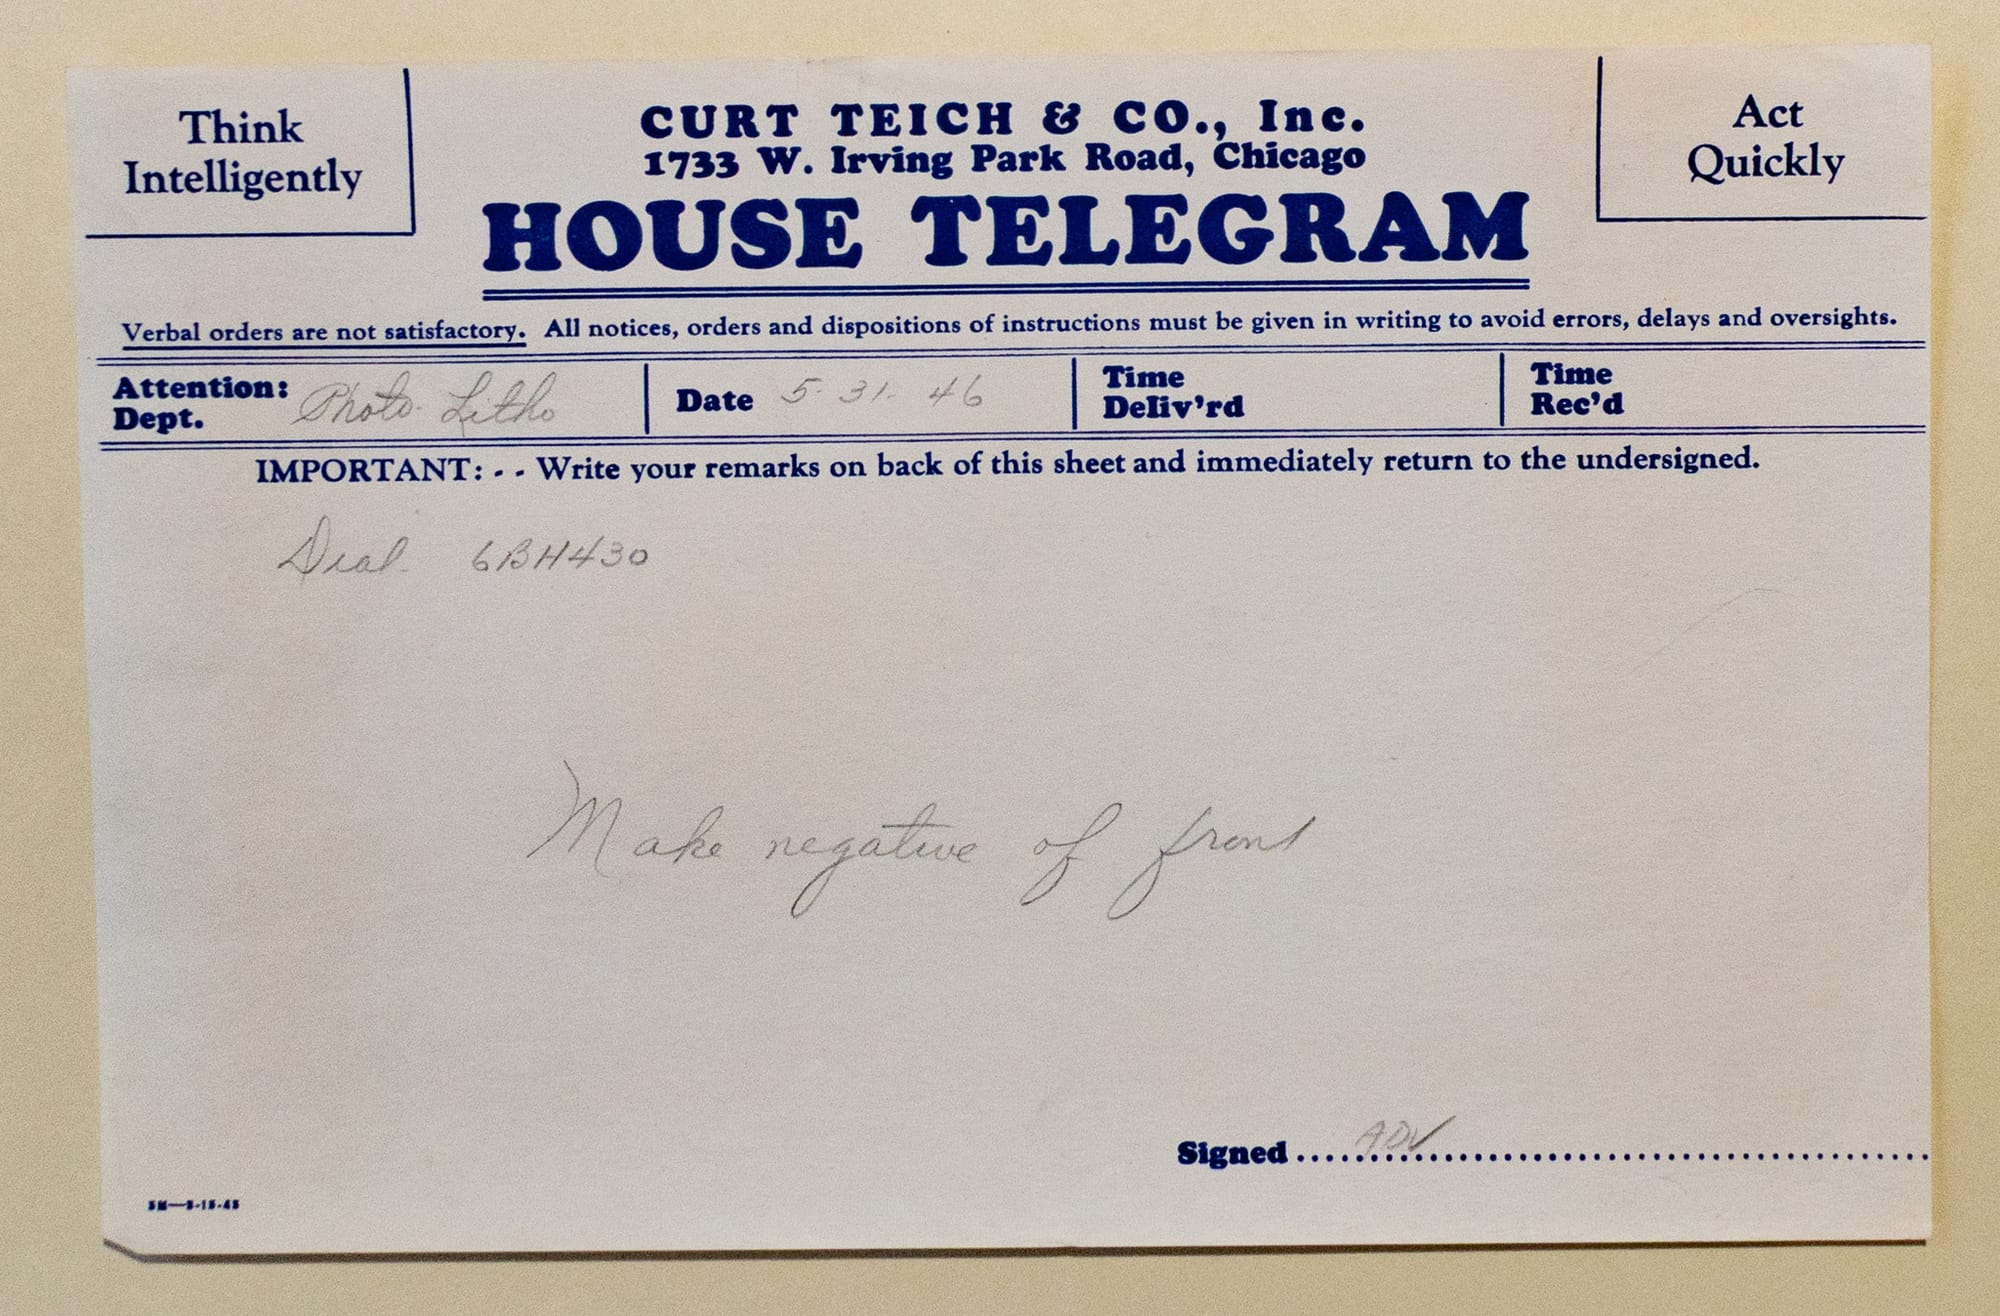 Think
Intelligently
CURT TEICH & CO., Inc.
1733 W. Irving Park Road, Chicago
HOUSE TELEGRAM
Act
Quickly
Verbal orders are not satisfactory. All notices, orders and dispositions of instructions must be given in writing to avoid errors, delays and oversights.
Attention: Dept. Photo-Litho
Date 5-31-46
Time Deliv'rd
Time Rec'd
IMPORTANT: - - Write your remarks on back of this sheet and immediately return to the undersigned.
6BH430
Make negative of front
Signed ADV